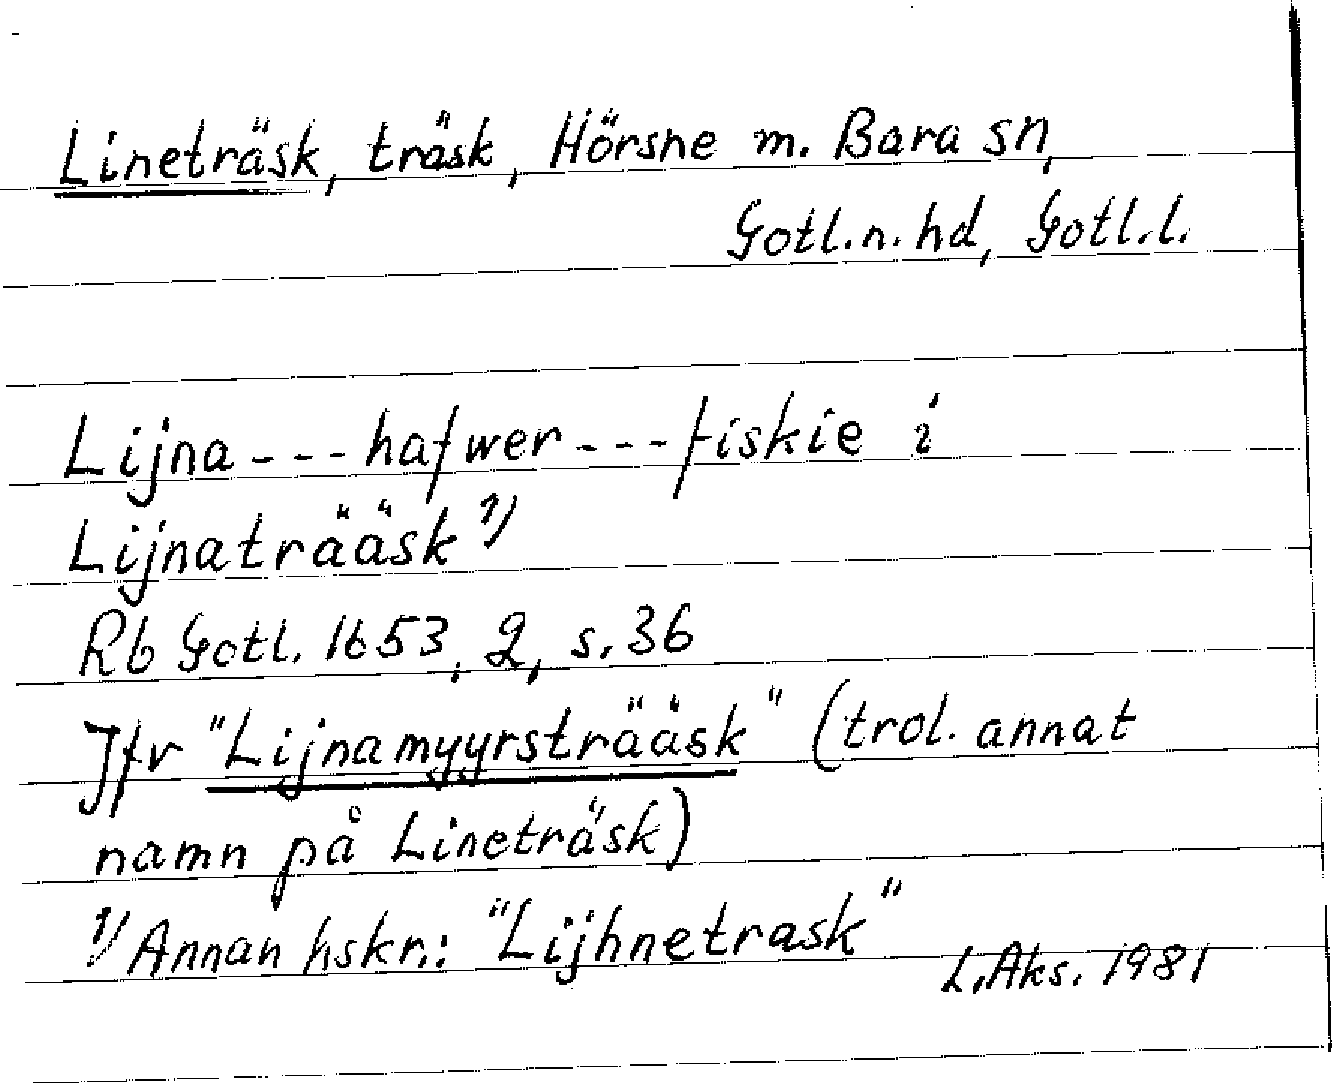 Lineträsk, träsk, Hörsne m. Bara sn,
Gotl.n.hd, Gotl.l.
Lijna---hafwer---fiskie i
Lijnaträäsk 1)
Rb Gotl. 1653, 2, s.36
Jfr "Lijnamyyrsträäsk" (trol. annat
namn på Lineträsk)
1) Annan hskr.: "Lijhnetrask"
L.Aks. 1981